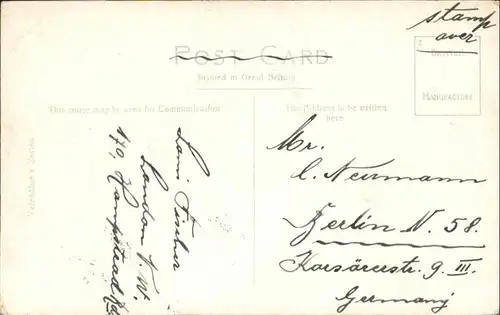 stamp
over
POST CARD
Printed in Great Britain
BRITISH
MANUFACTURE
This space may be used for Communication
The Address to be written
here
Valentine's Series
Fischer
London N.W.
170, Hampstead Rd.
Mr.
C. Neumann
Berlin N. 58.
9 III.
Germany